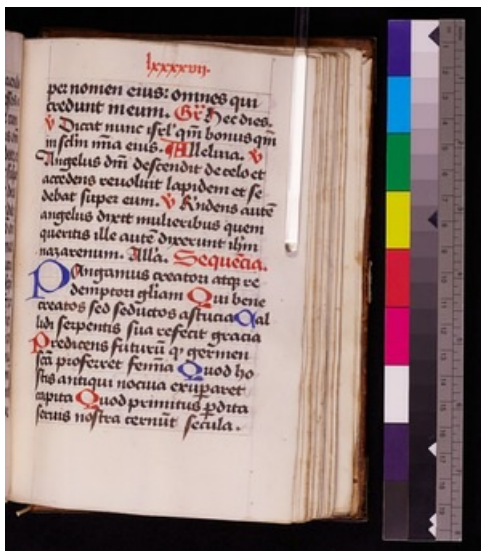 lxxxxvii.
per nomen eius: omnes qui
credunt meum. Gr̄ Hec dies.
v̄ Dicat nunc isrl' qm̄ bonus qm̄
in sclm̄ mīa eius. Alleluia. v̄
Angelus dm̄ descendit de celo et
accedens reuoluit lapidem et se
debat super eum. v̄ Rn̄dens autē
angelus dixit mulieribus quem
queritis ille autē dixerunt ihm̄
nazarenum. Alla. Sequēcia.
Pangamus creatori atqꝫ re
demptori gl̄iam Qui bene
creatos sed seductos astucia Cal
lidi serpentis sua refecit gracia
Predicens futurū qꝫ germen
scā proferret femīa Quod ho
stis antiqui nocua exuperaret
capita Quod primitus ꝑdita
secuis nostra cernūt secula.